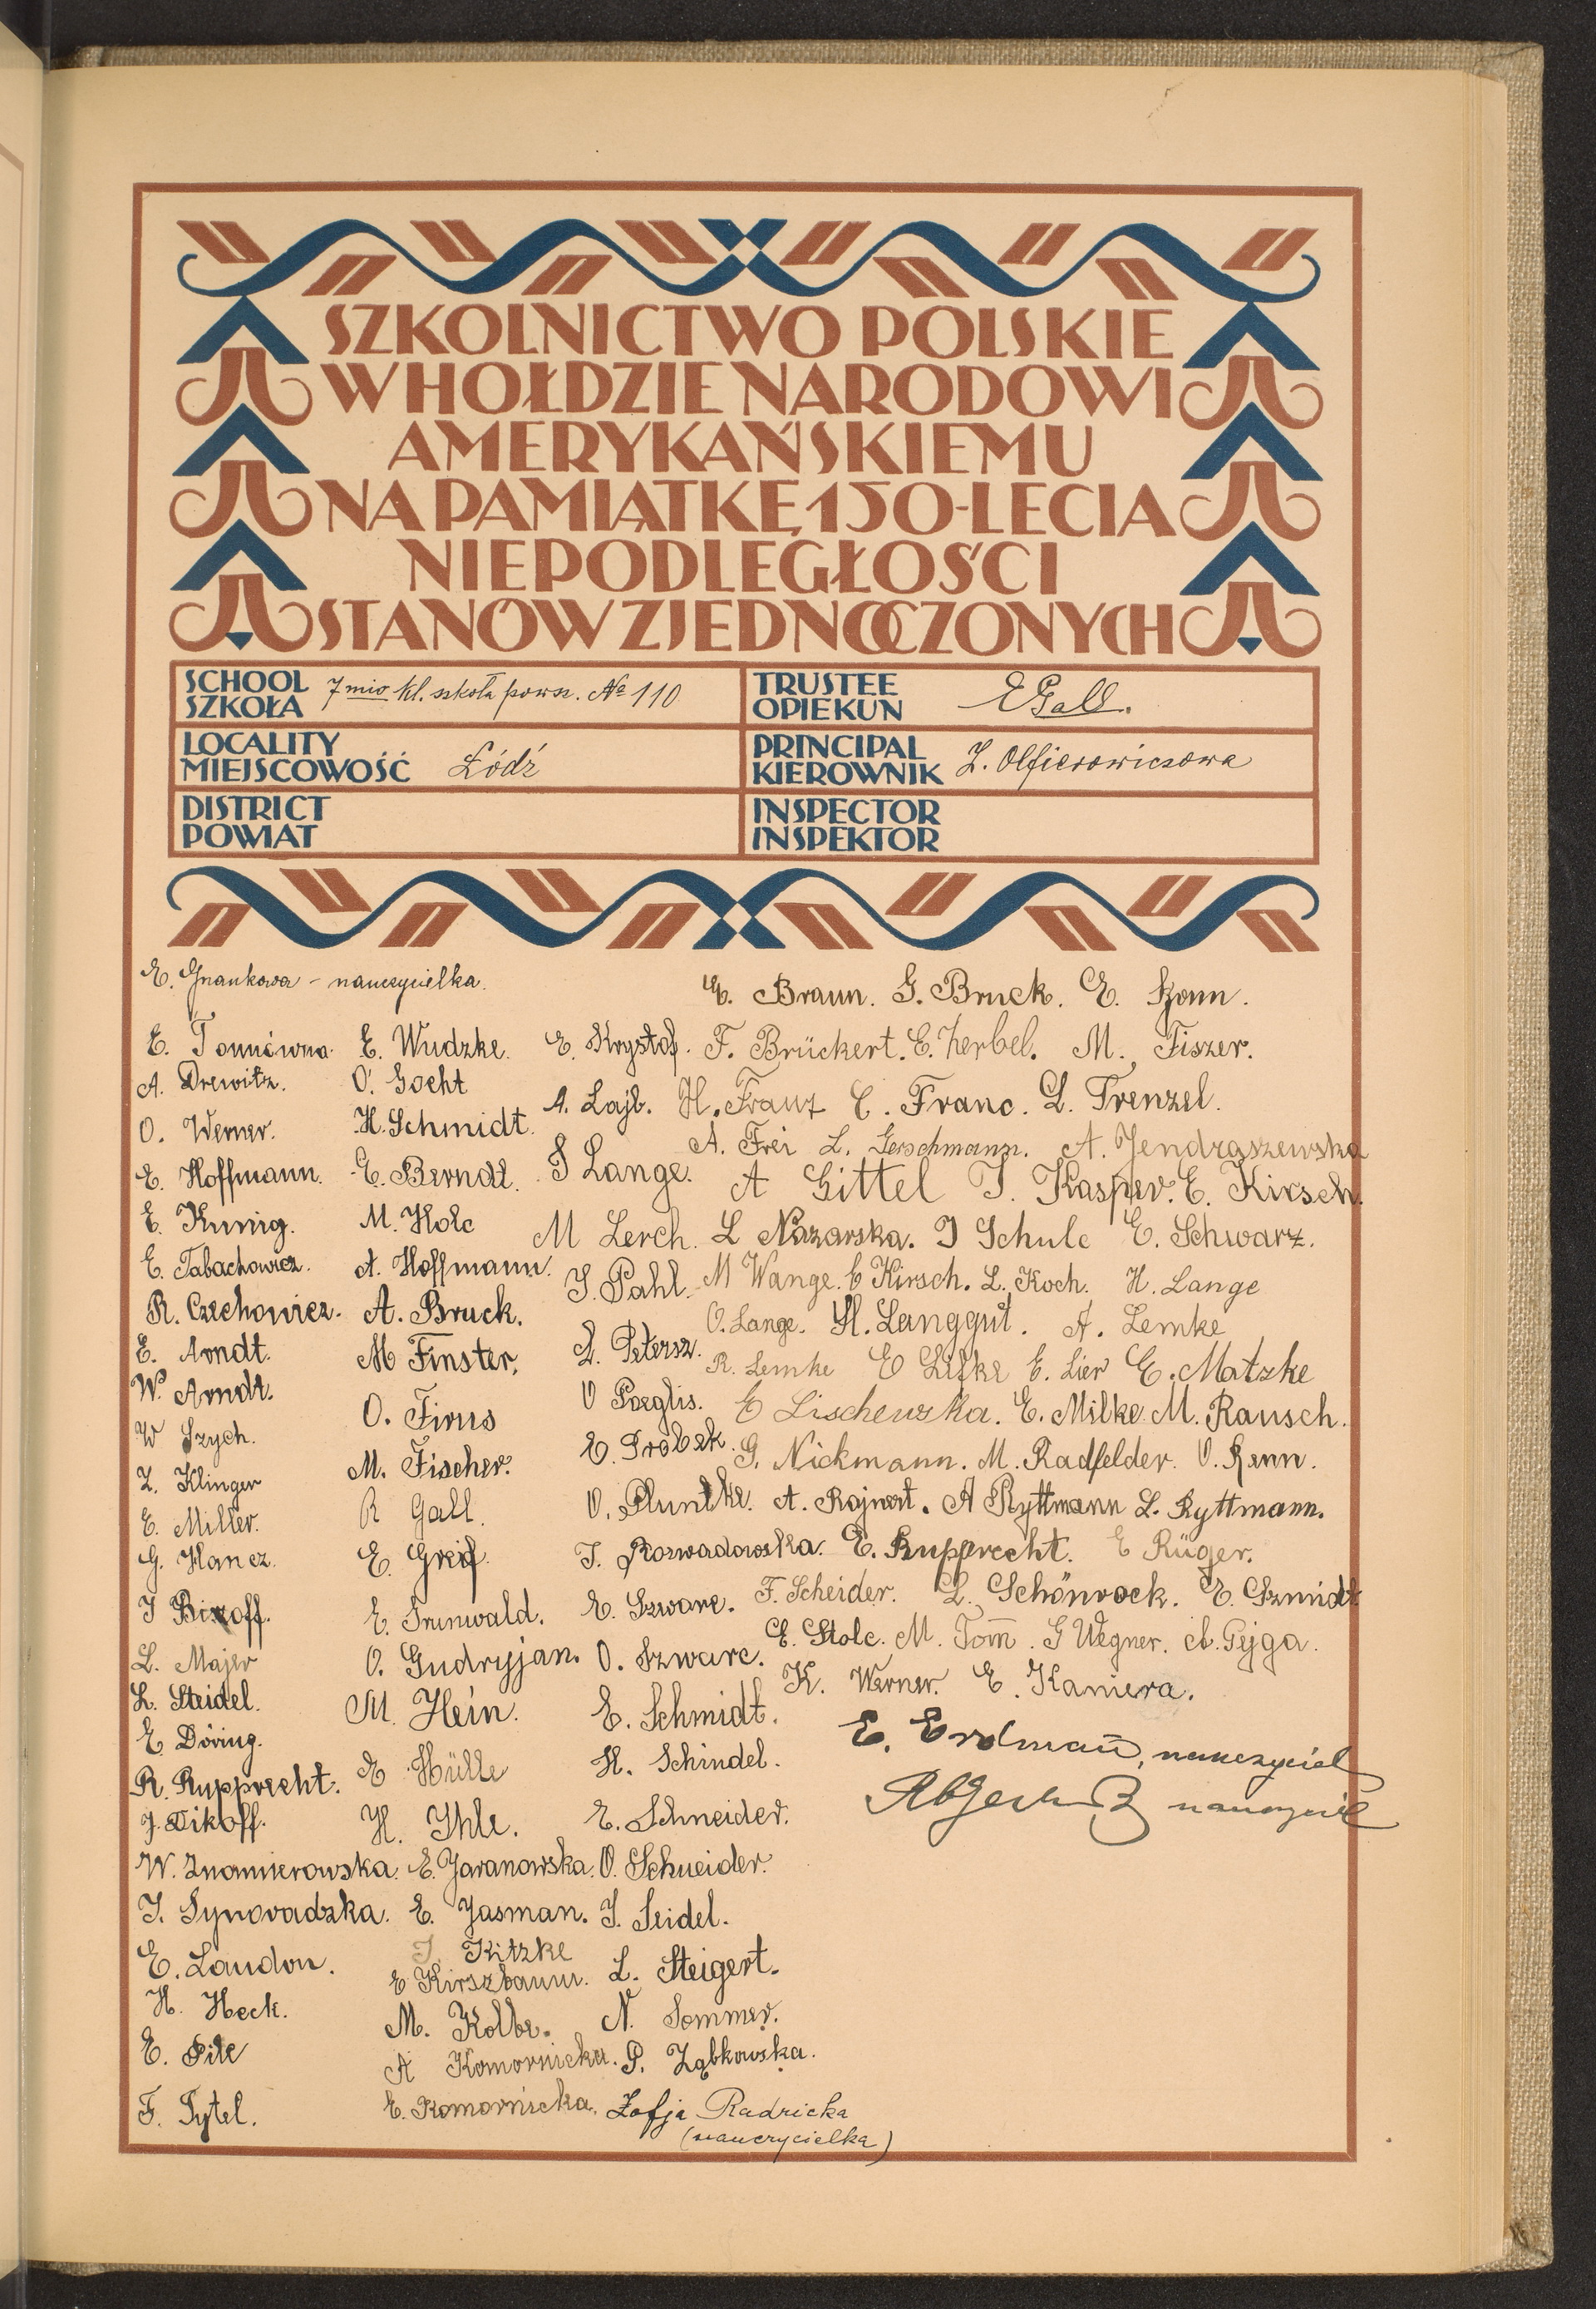 SZKOLNICTWO POLSKIE
W HOŁDZIE NARODOWI
AMERYKAŃSKIEMU
NA PAMIĄTKĘ 150-LECIA
NIEPODLEGŁOŚCI
STANÓW ZJEDNOCZONYCH
SCHOOL
SZKOŁA
7mio kl. szkoła powsz. № 110
TRUSTEE
OPIEKUN
E Gall.
LOCALITY
MIEJSCOWOŚĆ
Łódź
PRINCIPAL
KIEROWNIK
Z. Olfierowiczowa
DISTRICT
POWIAT
INSPECTOR
INSPEKTOR
E. Gnaukowa – nauczycielka.
E. Tonnówna.
A. Drewitz.
O. Werner.
E. Hoffmann.
E. Kunig.
E. Tabachowicz.
R. Czechowicz.
E. Arndt.
W. Arndt.
W Szych.
Z. Klinger
E. Miller.
G. Hancz.
J
L. Majer
L. Steidel.
E. Döring.
R. Rupprecht.
J. Dikoff.
W. Znamierowska.
J. Synovadzka.
E. Laudon.
H. Heck.
E. Pile
F. Tytel.
E. Wudzke.
O. Gocht
H. Schmidt.
E. Berndt.
M. Holc
A. Hoffmann.
A. Bruck.
M Finster.
O. Firus
M. Fischer.
R Gall.
E. Greif.
E. Grunwald.
O. Gudryjan.
M. Hein.
E Hülle
H. Ihle.
E. Jaranowska.
E. Jasman.
J. Kitzke
E Kirszbaum.
M. Kolbe.
A Komornicka.
E. Komornicka.
E. Krystof.
A. Lajb.
J Lange.
M Lerch.
J. Pahl.
L. Petersz.
O Poeglis.
E. Probek.
O. Pluntke.
J. Rozwadowska.
E. Szwarc.
O. Szwarc.
E. Schmidt.
H. Schindel.
E. Schneider.
O. Schneider.
J. Seidel.
L. Steigert.
N. Sommer.
P. Ząbkowska.
Zofja Radzicka
(nauczycielka)
E. Braun. G. Bruck. E.
F. Brückert. E. Zerbel. M. Fiszer.
H. Franz E. Franc. L. Frenzel.
A. Frei L. Gerschmann. A. Jendraszewska
A Gittel J. Kasper. E. Kirsch.
L Nazarska. J Schulc E. Schwarz.
M Wange. E Kirsch. L. Koch. H. Lange
O. Lange. H. Langgut. A. Lemke
R. Lemke E Lifke E. Lier E. Matzke
E Lischewska. E. Milke M. Rausch.
G. Nickmann. M. Radfelder. O. Renn.
A. Rajnert. A Ryttmann L. Ryttmann.
E. Rupprecht. E Rüger.
F. Scheider. L. Schönrock. E. Szmidt
E. Stolc. M. Tom̄. G Wegner. A. Fejga.
K. Werner. E. Kamera.
E. Erdman̄, nauczyciel
nauczyciel